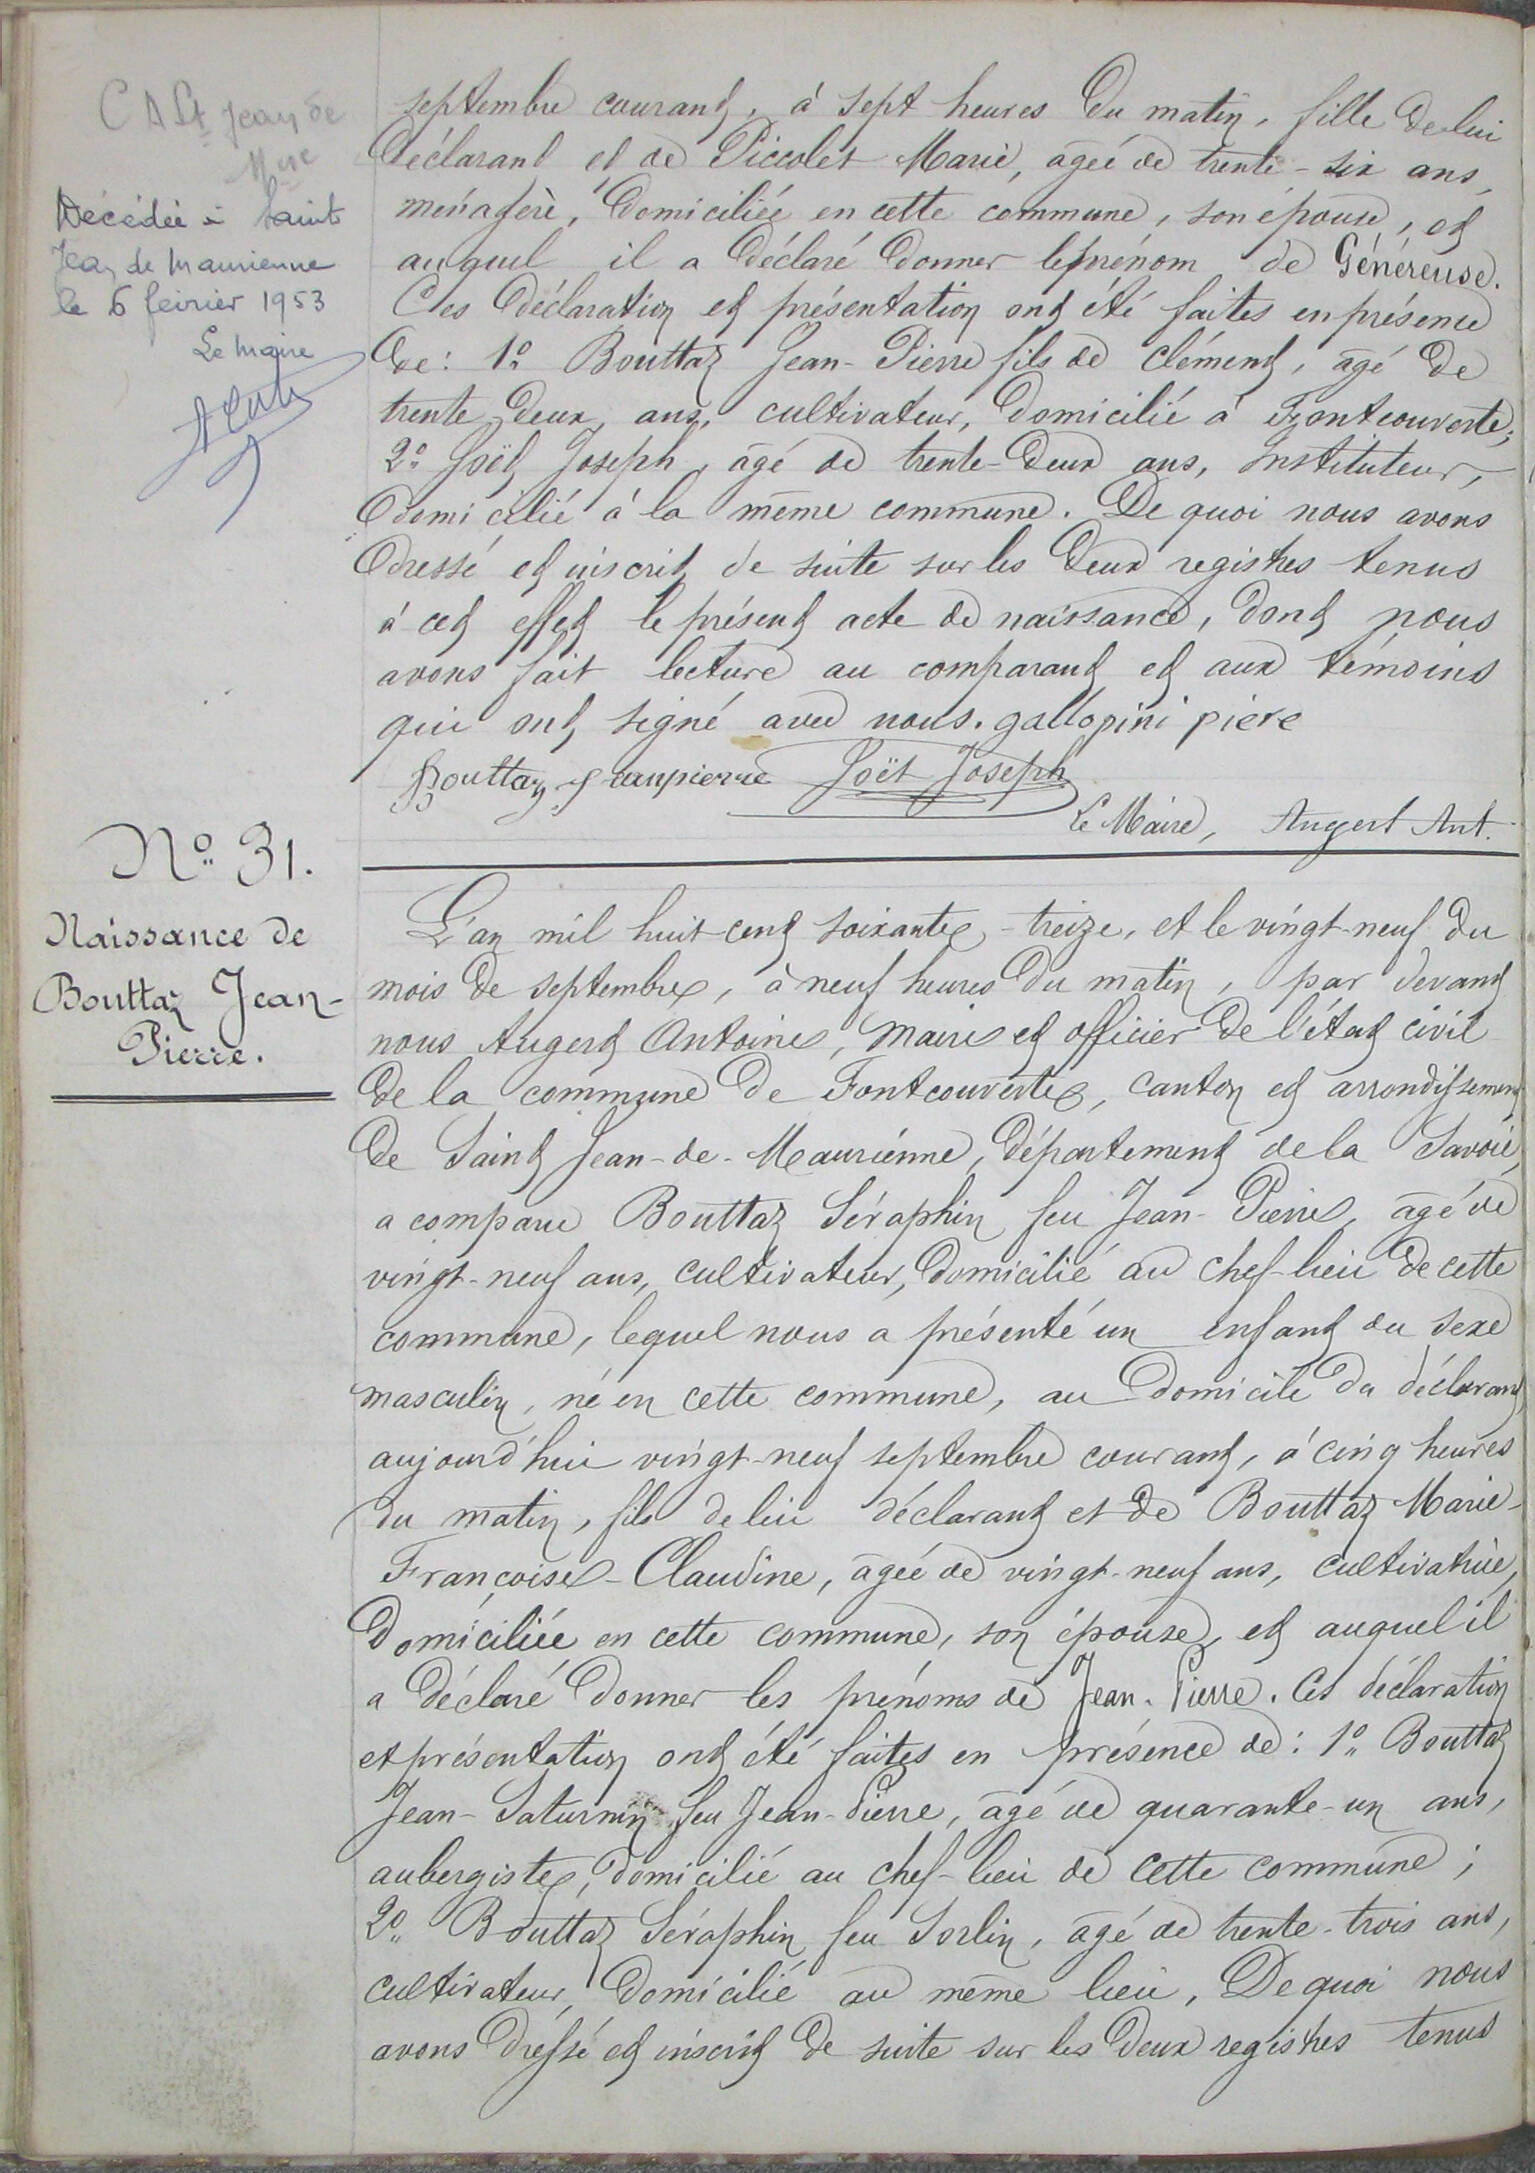 C A St Jean de
Mne
Décédée à Saint
Jean de Maurienne
le 6 février 1953
Le Maire
septembre courant, à sept heures du matin, fille de lui
déclarant et de Piccolet Marie, âgée de trente-six ans,
ménagère, domiciliée en cette commune, son épouse, et
auquel il a déclaré donner le prénom de Généreuse.
Ces déclaration et présentation ont été faites en présence
de: 1° Bouttaz Jean-Pierre fils de Clément, âgé de
trente deux ans, cultivateur, domicilié à Fontcouverte;
2° Joët Joseph, âgé de trente-deux ans, Instituteur,
domicilié à la même commune. De quoi nous avons
dressé et inscrit de suite sur les deux registres tenus
à cet effet le présent acte de naissance, dont nous
avons fait lecture au comparant et aux témoins
qui ont signé avec nous. gallopini piere
Bouttaz Jeanpierre Joët Joseph
Le Maire, Augert Ant.
N° 31.
Naissance de
Bouttaz Jean-
Pierre.
L'an mil huit cent soixante-treize, et le vingt-neuf du
mois de septembre, à neuf heures du matin, par devant
nous Augert Antoine, Maire et officier de l'état civil
de la commune de Fontcouverte, canton et arrondissement
de Saint Jean-de-Maurienne, département de la Savoie,
a comparu Bouttaz Séraphin feu Jean-Pierre, âgé de
vingt-neuf ans, cultivateur, domicilié au chef-lieu de cette
commune, lequel nous a présenté un enfant du sexe
masculin, né en cette commune, au domicile du déclarant
aujourd'hui vingt-neuf septembre courant, à cinq heures
du matin, fils de lui déclarant et de Bouttaz Marie-
Françoise-Claudine, âgée de vingt-neuf ans, cultivatrice,
domiciliée en cette commune, son épouse, et auquel il
a déclaré donner les prénoms de Jean-Pierre. Ces déclaration
et présentation ont été faites en présence de: 1° Bouttaz
Jean-Saturnin feu Jean-Pierre, âgé de quarante-un ans,
aubergiste, domicilié au chef-lieu de cette commune;
2° Bouttaz Séraphin feu Sorlin, âgé de trente-trois ans,
cultivateur, domicilié au même lieu. De quoi nous
avons dressé et inscrit de suite sur les deux registres tenus